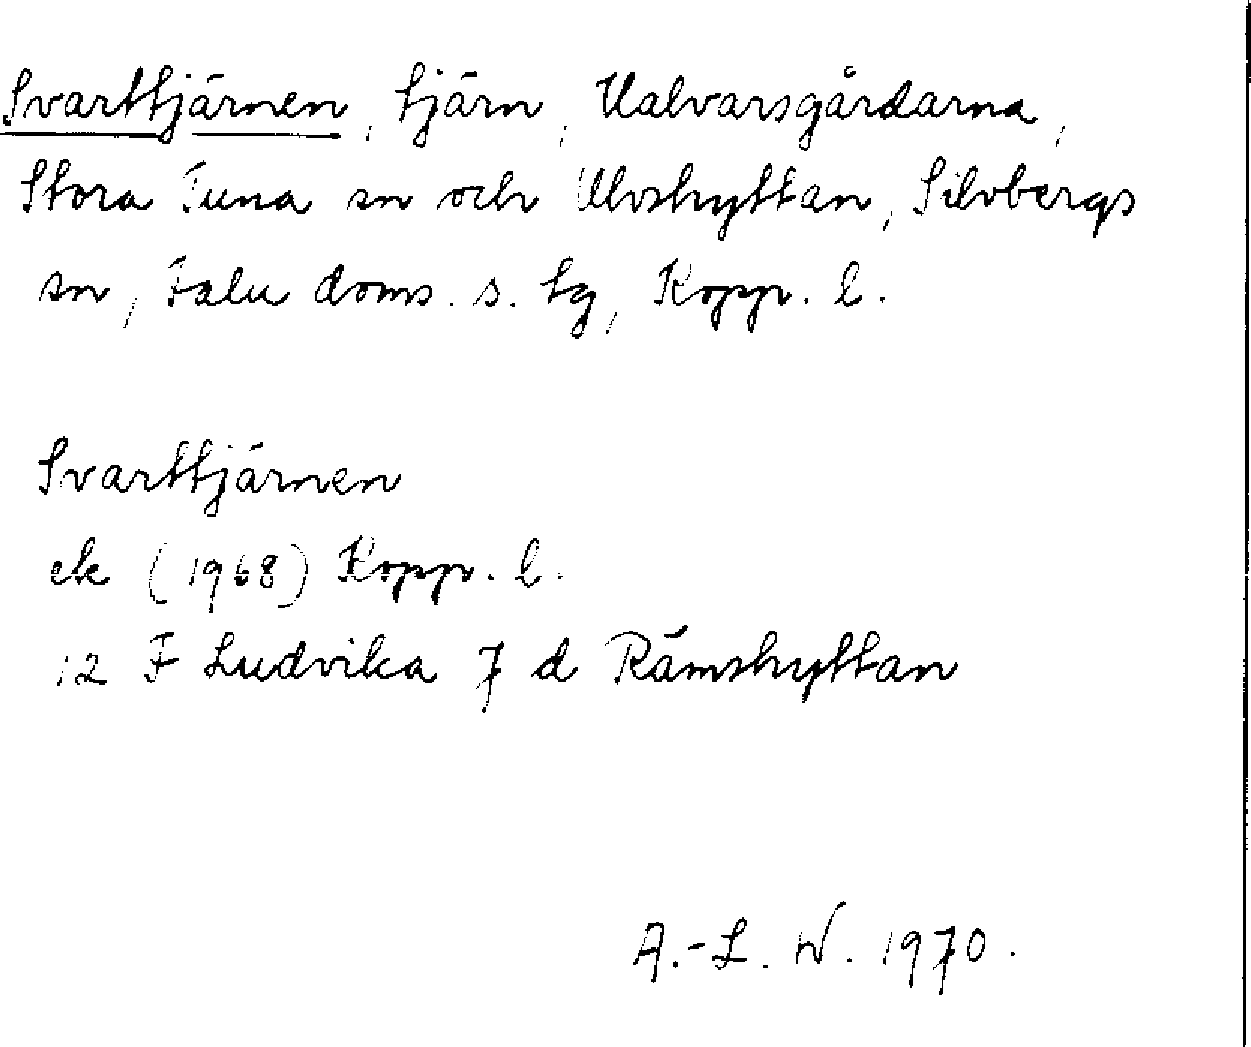 Svarttjärnen, tjärn, Ualvarsgårdarna,
Stora Tuna sn och Ulvshyttan, Silvbergs
sn, Falu doms. s. tg, Kopp. l.
Svarttjärnen
ek (1968) Kopp. l.
12 F Ludvika 7 d Rämshyttan
A.-L. W. 1970.